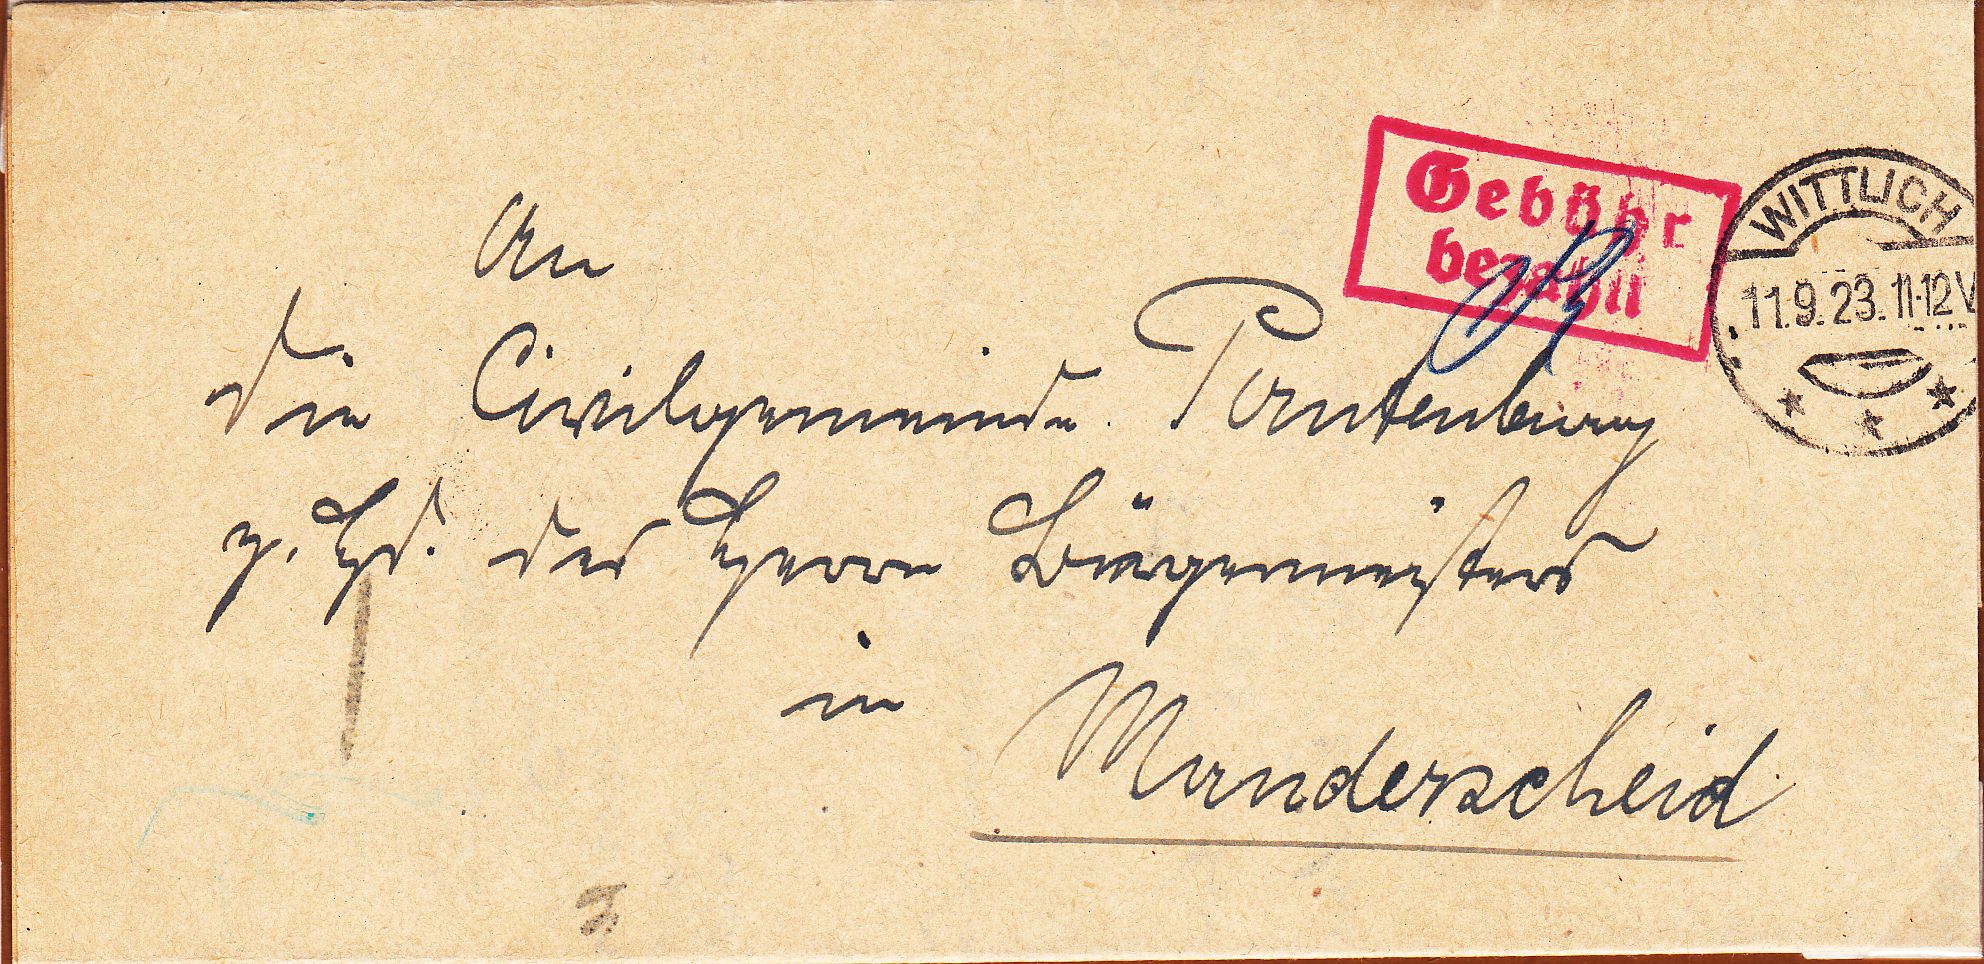 Gebühr
bezahlt
WITTLICH
11.9.23.11-12V
An
die Civilgemeinde Pantenburg
z. Hd. des Herrn Bürgermeisters
in
Manderscheid